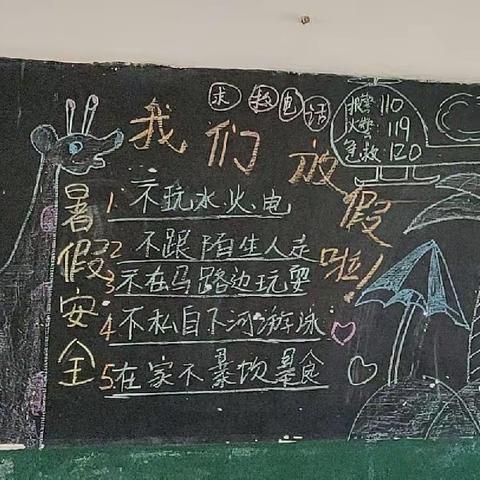 求救电话
报警110
火警119
急救120
我们放假啦!
暑假安全
1 不玩水火电
2 不跟陌生人走
3 不在马路边玩耍
4 不私自下河游泳
5 在家不暴饮暴食